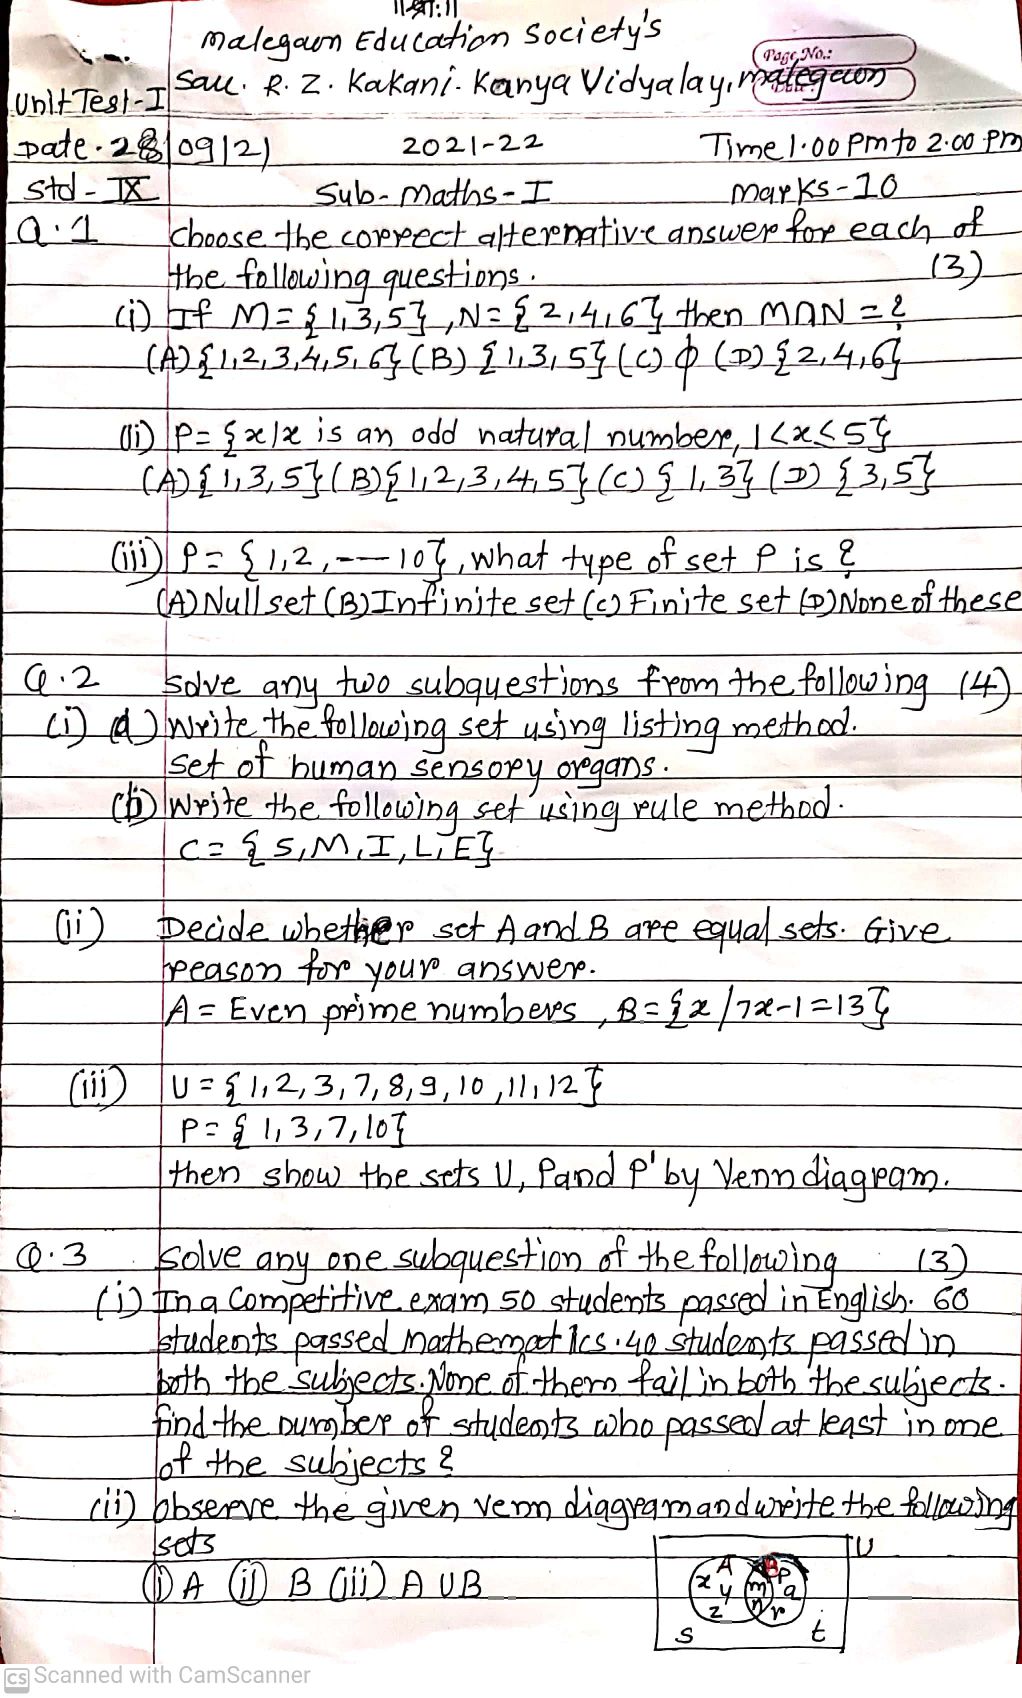 ||श्री:||
Malegaon Education Society's
Page No.:
Sau. R. Z. Kakani. Kanya Vidyalay, malegaon
Unit Test-I
Date. 28/09/21 2021-22 Time 1.00 Pm to 2.00 Pm
Std - IX Sub- Maths-I Marks-10
Q.1 Choose the correct alternative answer for each of
the following questions. (3)
(i) If M = {1,3,5}, N = {2,4,6} then M∩N = ?
(A) {1,2,3,4,5,6} (B) {1,3,5} (C) ϕ (D) {2,4,6}
(ii) P = {x/x is an odd natural number, 1<x≤5}
(A) {1,3,5} (B) {1,2,3,4,5} (C) {1,3} (D) {3,5}
(iii) P = {1,2,---10}, what type of set P is ?
(A) Null set (B) Infinite set (C) Finite set (D) None of these
Q.2 Solve any two subquestions from the following (4)
(i) (a) Write the following set using listing method.
set of human sensory organs.
(b) Write the following set using rule method.
C = {S,M,I,L,E}
(ii) Decide whether set A and B are equal sets. Give
reason for your answer.
A = Even prime numbers, B = {x/7x-1=13}
(iii) U = {1,2,3,7,8,9,10,11,12}
P = {1,3,7,10}
then show the sets U, P and P' by Venn diagram.
Q.3 Solve any one subquestion of the following (3)
(i) In a Competitive exam 50 students passed in English. 60
students passed Mathematics. 40 students passed in
both the subjects. None of them fail in both the subjects.
find the number of students who passed at least in one
of the subjects ?
(ii) Observe the given venn diagram and write the following
sets
(i) A (ii) B (iii) A U B
U
A B
x y z m n p q r
s t
CS Scanned with CamScanner